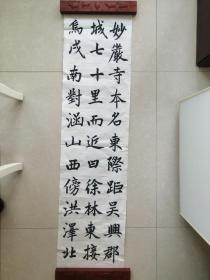 妙嚴寺本名東際距吳興郡
城七十里而近曰徐林東接
烏戍南對涵山西傍洪澤北